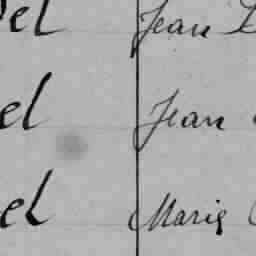 el Jean
el Jean
el Marie